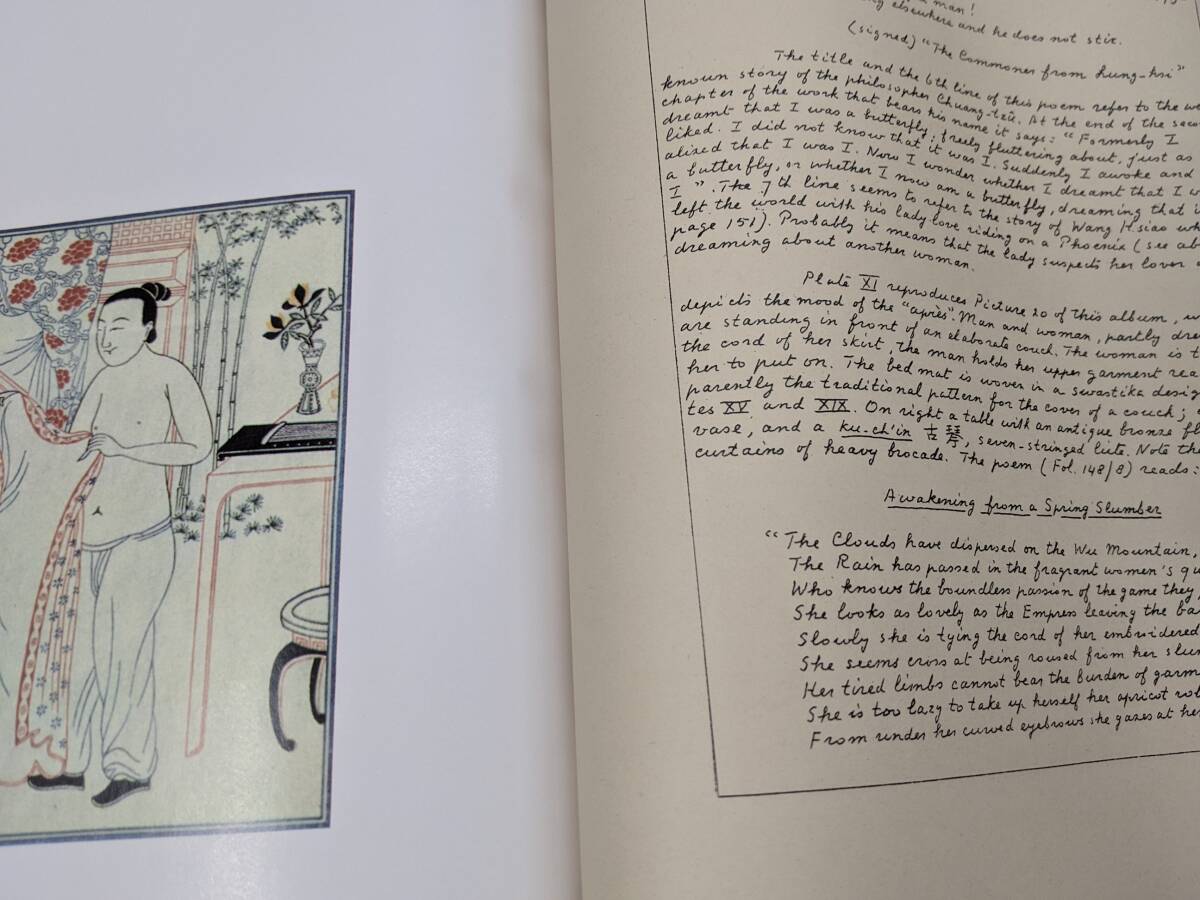 a man!
elsewhere and he does not stir.
(signed) "The Commoner from Lung-hsi"
The title and the 6th line of this poem refer to the
known story of the philosopher Chuang-tzû. At the end of the
chapter of the work that bears his name it says: "Formerly I
dreamt that I was a butterfly, freely fluttering about, just as
liked. I did not know that it was I. Suddenly I awoke and
that I was I. Now I wonder whether I dreamt that I
a butterfly, or whether I now am a butterfly, dreaming that
I". The 7th line seems to refer to the story of Wang Hsiao
left the world with his lady love riding on a Phoenix (see
page 151). Probably it means that the lady suspects her lover
dreaming about another woman.
Plate XI reproduces Picture 20 of this album,
depicts the mood of the "après". Man and woman, partly
are standing in front of an elaborate couch. The woman is
the cord of her skirt, the man holds her upper garment
her to put on. The bed mat is woven in a swastika
parently the traditional pattern for the cover of a couch;
tes XV and XIX. On right a table with an antique bronze
vase, and a ku-ch'in 古琴, seven-stringed lute. Note the
curtains of heavy brocade. The poem (Fol. 148/8) reads:
Awakening from a Spring Slumber
"The Clouds have dispersed on the Wu Mountain,
The Rain has passed in the fragrant women's
Who knows the boundless passion of the game they
She looks as lovely as the Empress leaving the
Slowly she is tying the cord of her embroidered
She seems cross at being roused from her
Her tired limbs cannot bear the burden of
She is too lazy to take up herself her apricot
From under her curved eyebrows she gazes at